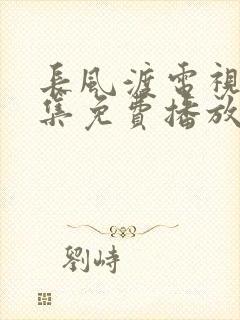 長風渡電視
集免費播放
劉峙